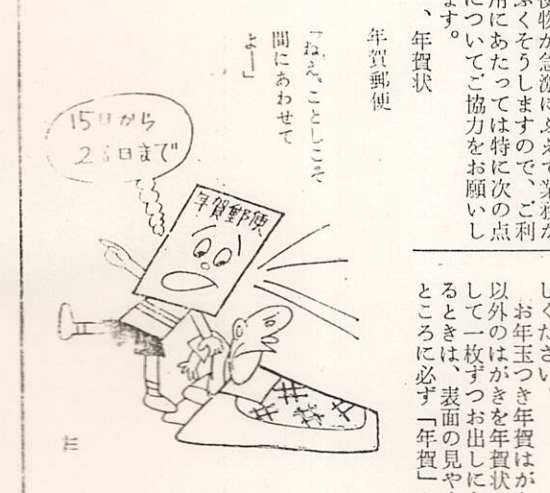 便物が急激にふえて業務が
ふくそうしますので、ご利
用にあたっては特に次の点
についてご協力をお願いし
ます。
、年賀状
年賀郵便
「ねえ。ことしこそ
間にあわせて
よー」
15日から
日まで
年賀郵便
しください
お年玉つき年賀はが
以外のはがきを年賀状
して一枚ずつお出しに
るときは、表面の見や
ところに必ず「年賀」